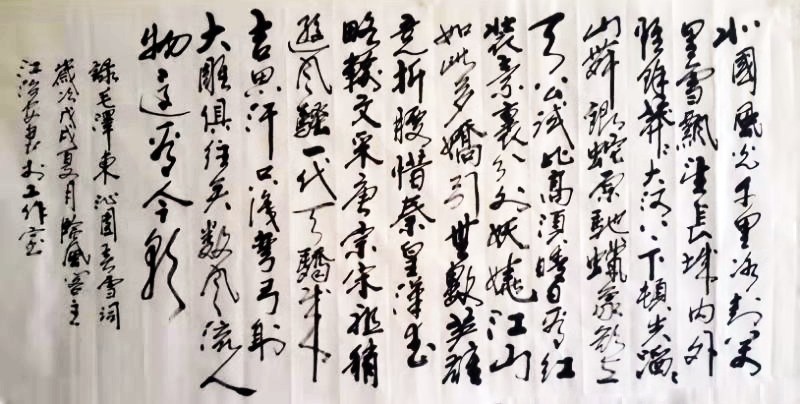 北國風光千里冰封萬
里雪飄望長城內外
惟餘莽莽大河上下頓失滔滔
山舞銀蛇原馳蠟象欲與
天公試比高須晴日看紅
裝素裹分外妖嬈江山
如此多嬌引無數英雄
竞折腰惜秦皇漢武
略輸文采唐宗宋祖稍
遜風騷一代天驕成
吉思汗只識彎弓射
大雕俱往矣數風流人
物還看今朝
錄毛澤東沁園春雪詞
歲次戊戌夏月 風客主
江 於工作室